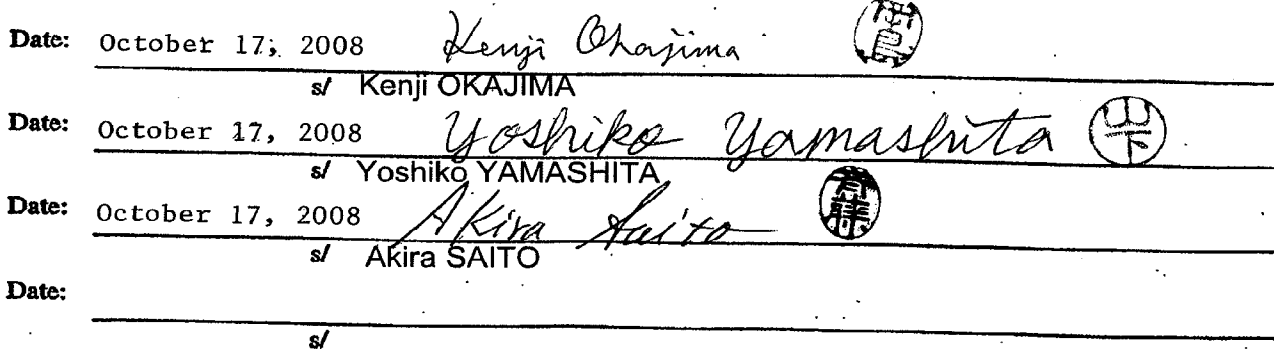 Date: October 17, 2008 Kenji Okajima
s/ Kenji OKAJIMA
Date: October 17, 2008 Yoshiko Yamashita 山下
s/ Yoshiko YAMASHITA
Date: October 17, 2008 Akira Saito 斉藤
s/ Akira SAITO
Date:
s/